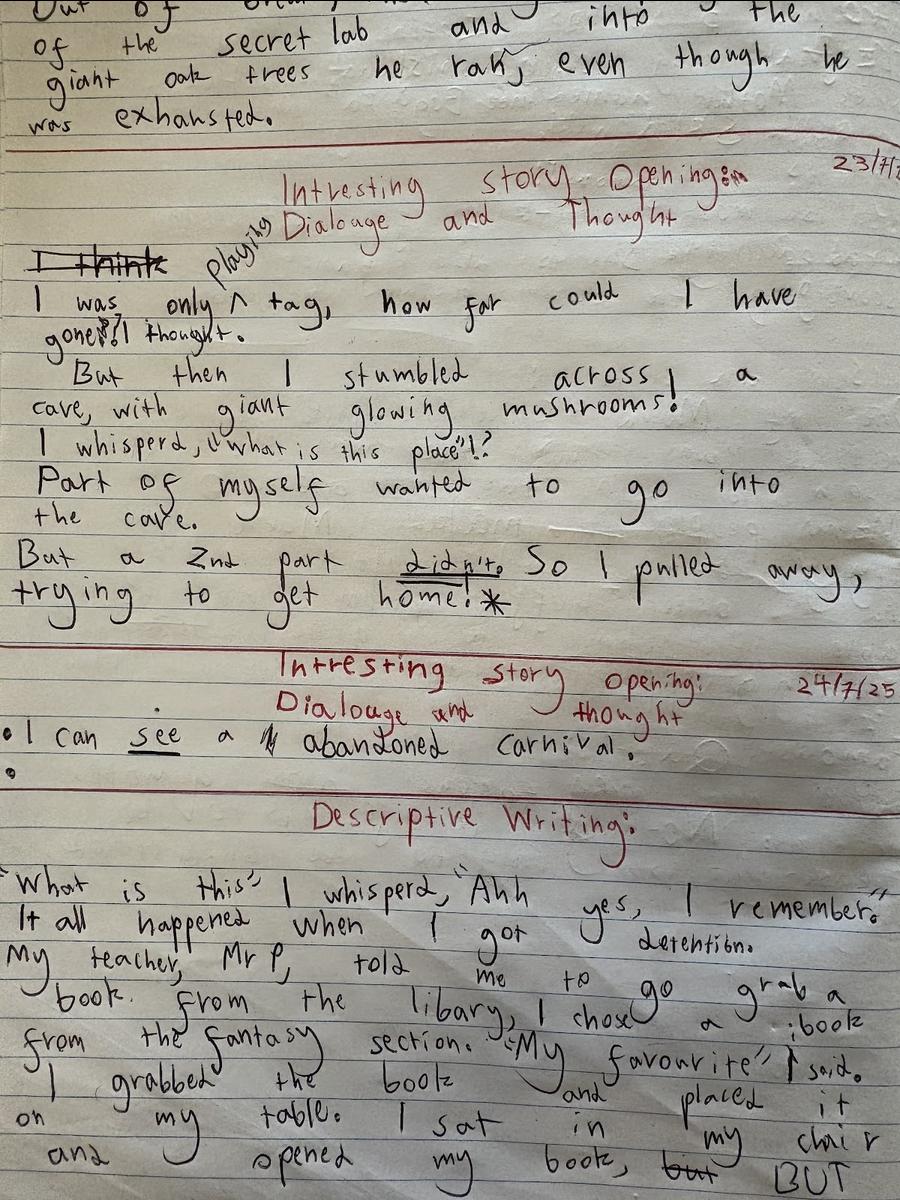 Out of
of the secret lab and into the
giant oak trees he ran, even though he
was exhausted.
23/7/2
Intresting story Opening:
Dialouge and Thought
I think
I was only playing tag, how far could I have
gone?! I thought.
But then I stumbled across a
cave, with giant glowing mushrooms!
I whisperd, "what is this place"!?
Part of myself wanted to go into
the cave.
But a 2nd part didn't. So I pulled away,
trying to get home!*
Intresting story opening: 24/7/25
Dialouge and thought
• I can see a abandoned carnival.
•
Descriptive Writing:
"What is this" I whisperd, "Ahh yes, I remember."
It all happened when I got detention.
My teacher, Mr P, told me to go grab a
book. from the libary, I chose a book
from the fantasy section. "My favourite" I said.
I grabbed the book and placed it
on my table. I sat in my chair
and opened my book, but BUT